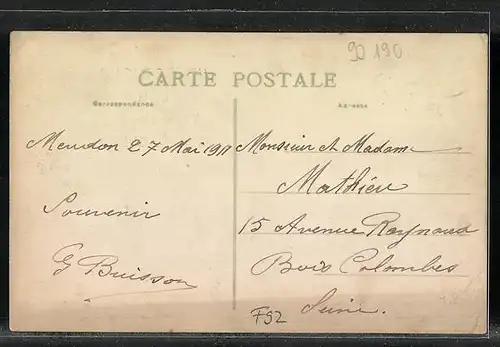 90 190
CARTE POSTALE
Correspondance
Adresse
Meudon 27 Mai 1911
Souvenir
G Buisson
Monsieur et Madame
Mathieu
15 Avenue Raynaud
Bois Colombes
Seine.
F92